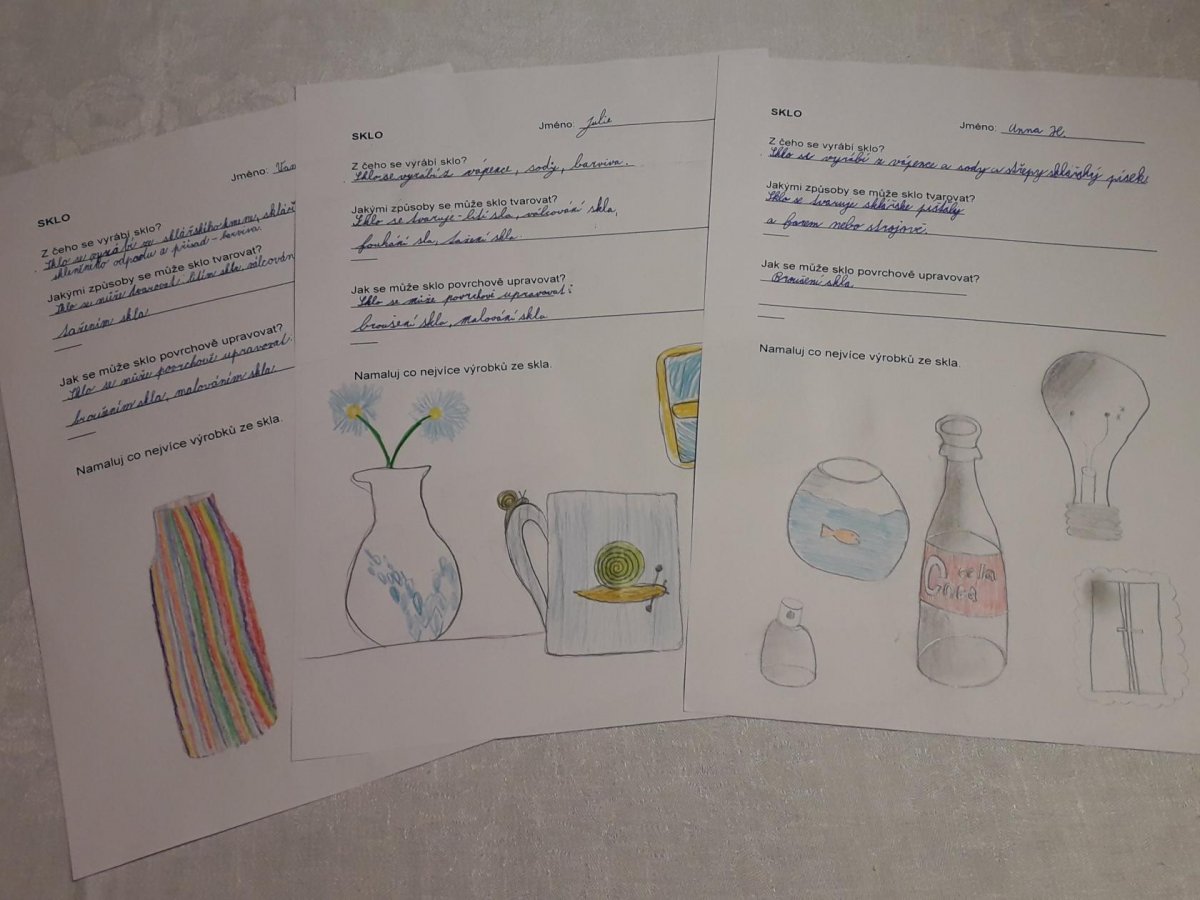 SKLO
Jméno:
Z čeho se vyrábí sklo?
Sklo se vyrábí ze sklářského kmene, sklář
skleněného odpadu a přísad - barviva.
Jakými způsoby se může sklo tvarovat?
Sklo se může tvarovat: litím skla, válcován
tažením skla
Jak se může sklo povrchově upravovat?
Sklo se může povrchově upravovat:
broušením skla, malováním skla
Namaluj co nejvíce výrobků ze skla.
SKLO
Jméno: Julie
Z čeho se vyrábí sklo?
Sklo se vyrábí z vápence, sody, barviva.
Jakými způsoby se může sklo tvarovat?
Sklo se tvaruje - lití sla, válcování skla,
foukání sla, tažení skla.
Jak se může sklo povrchově upravovat?
Sklo se může povrchově upravovat:
broušení skla, malování skla
Namaluj co nejvíce výrobků ze skla.
SKLO
Jméno: Anna H.
Z čeho se vyrábí sklo?
Sklo se vyrábí z vápence a sody a střepy sklářský písek
Jakými způsoby se může sklo tvarovat?
Sklo se tvaruje sklářské píšťaly
a forem nebo strojově.
Jak se může sklo povrchově upravovat?
Broušení skla
Namaluj co nejvíce výrobků ze skla.
Coca
cola